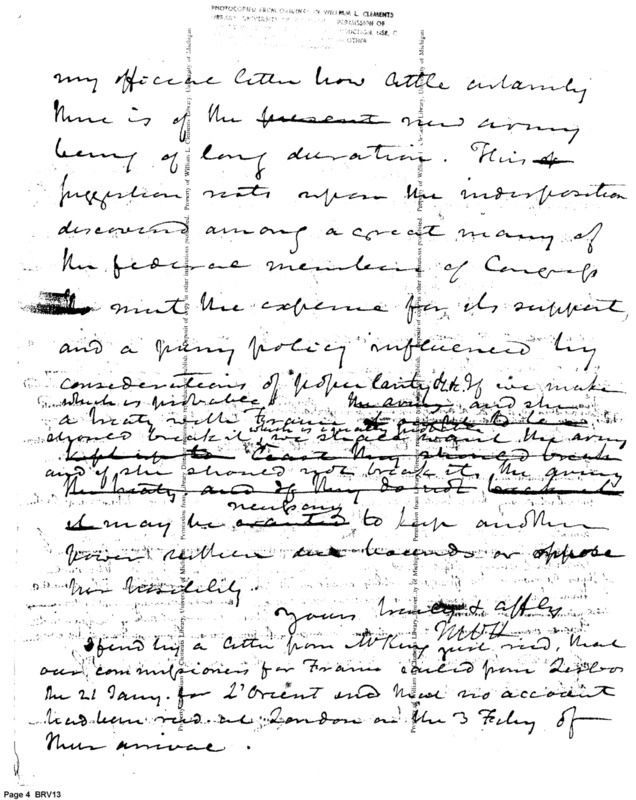 PHOTOCOPIED FROM ORIGINAL IN WILLIAM L. CLEMENTS
LIBRARY, UNIVERSITY OF PERMISSION OF
USE,
OTHER
my official letter how little certainty
there is of the present new army
being of long duration. This
suggestion rests upon the indisposition
discovered among a great many of
the federal members of Congress
meet the expense for its support,
and a party policy influenced by
considerations of popularity &c. If we make
which is probable the army and she
a treaty with France
which is equally probable
should break it, we shall want the army
kept up least they should break
and if she should not break it, the army
the treaty and if they do not
necessary
it may be wanted to keep another
power within bounds or oppose
her hostility.
yours truly & affly
I find by a letter from Mr King just recd, that
our commissioners for France sailed from Lisbon
the 21 Jany. for L'Orient and that no account
had been recd at London on the 3 Feby of
their arrival.
Property of William L. Clements Library, University of Michigan
Page 4 BRV13